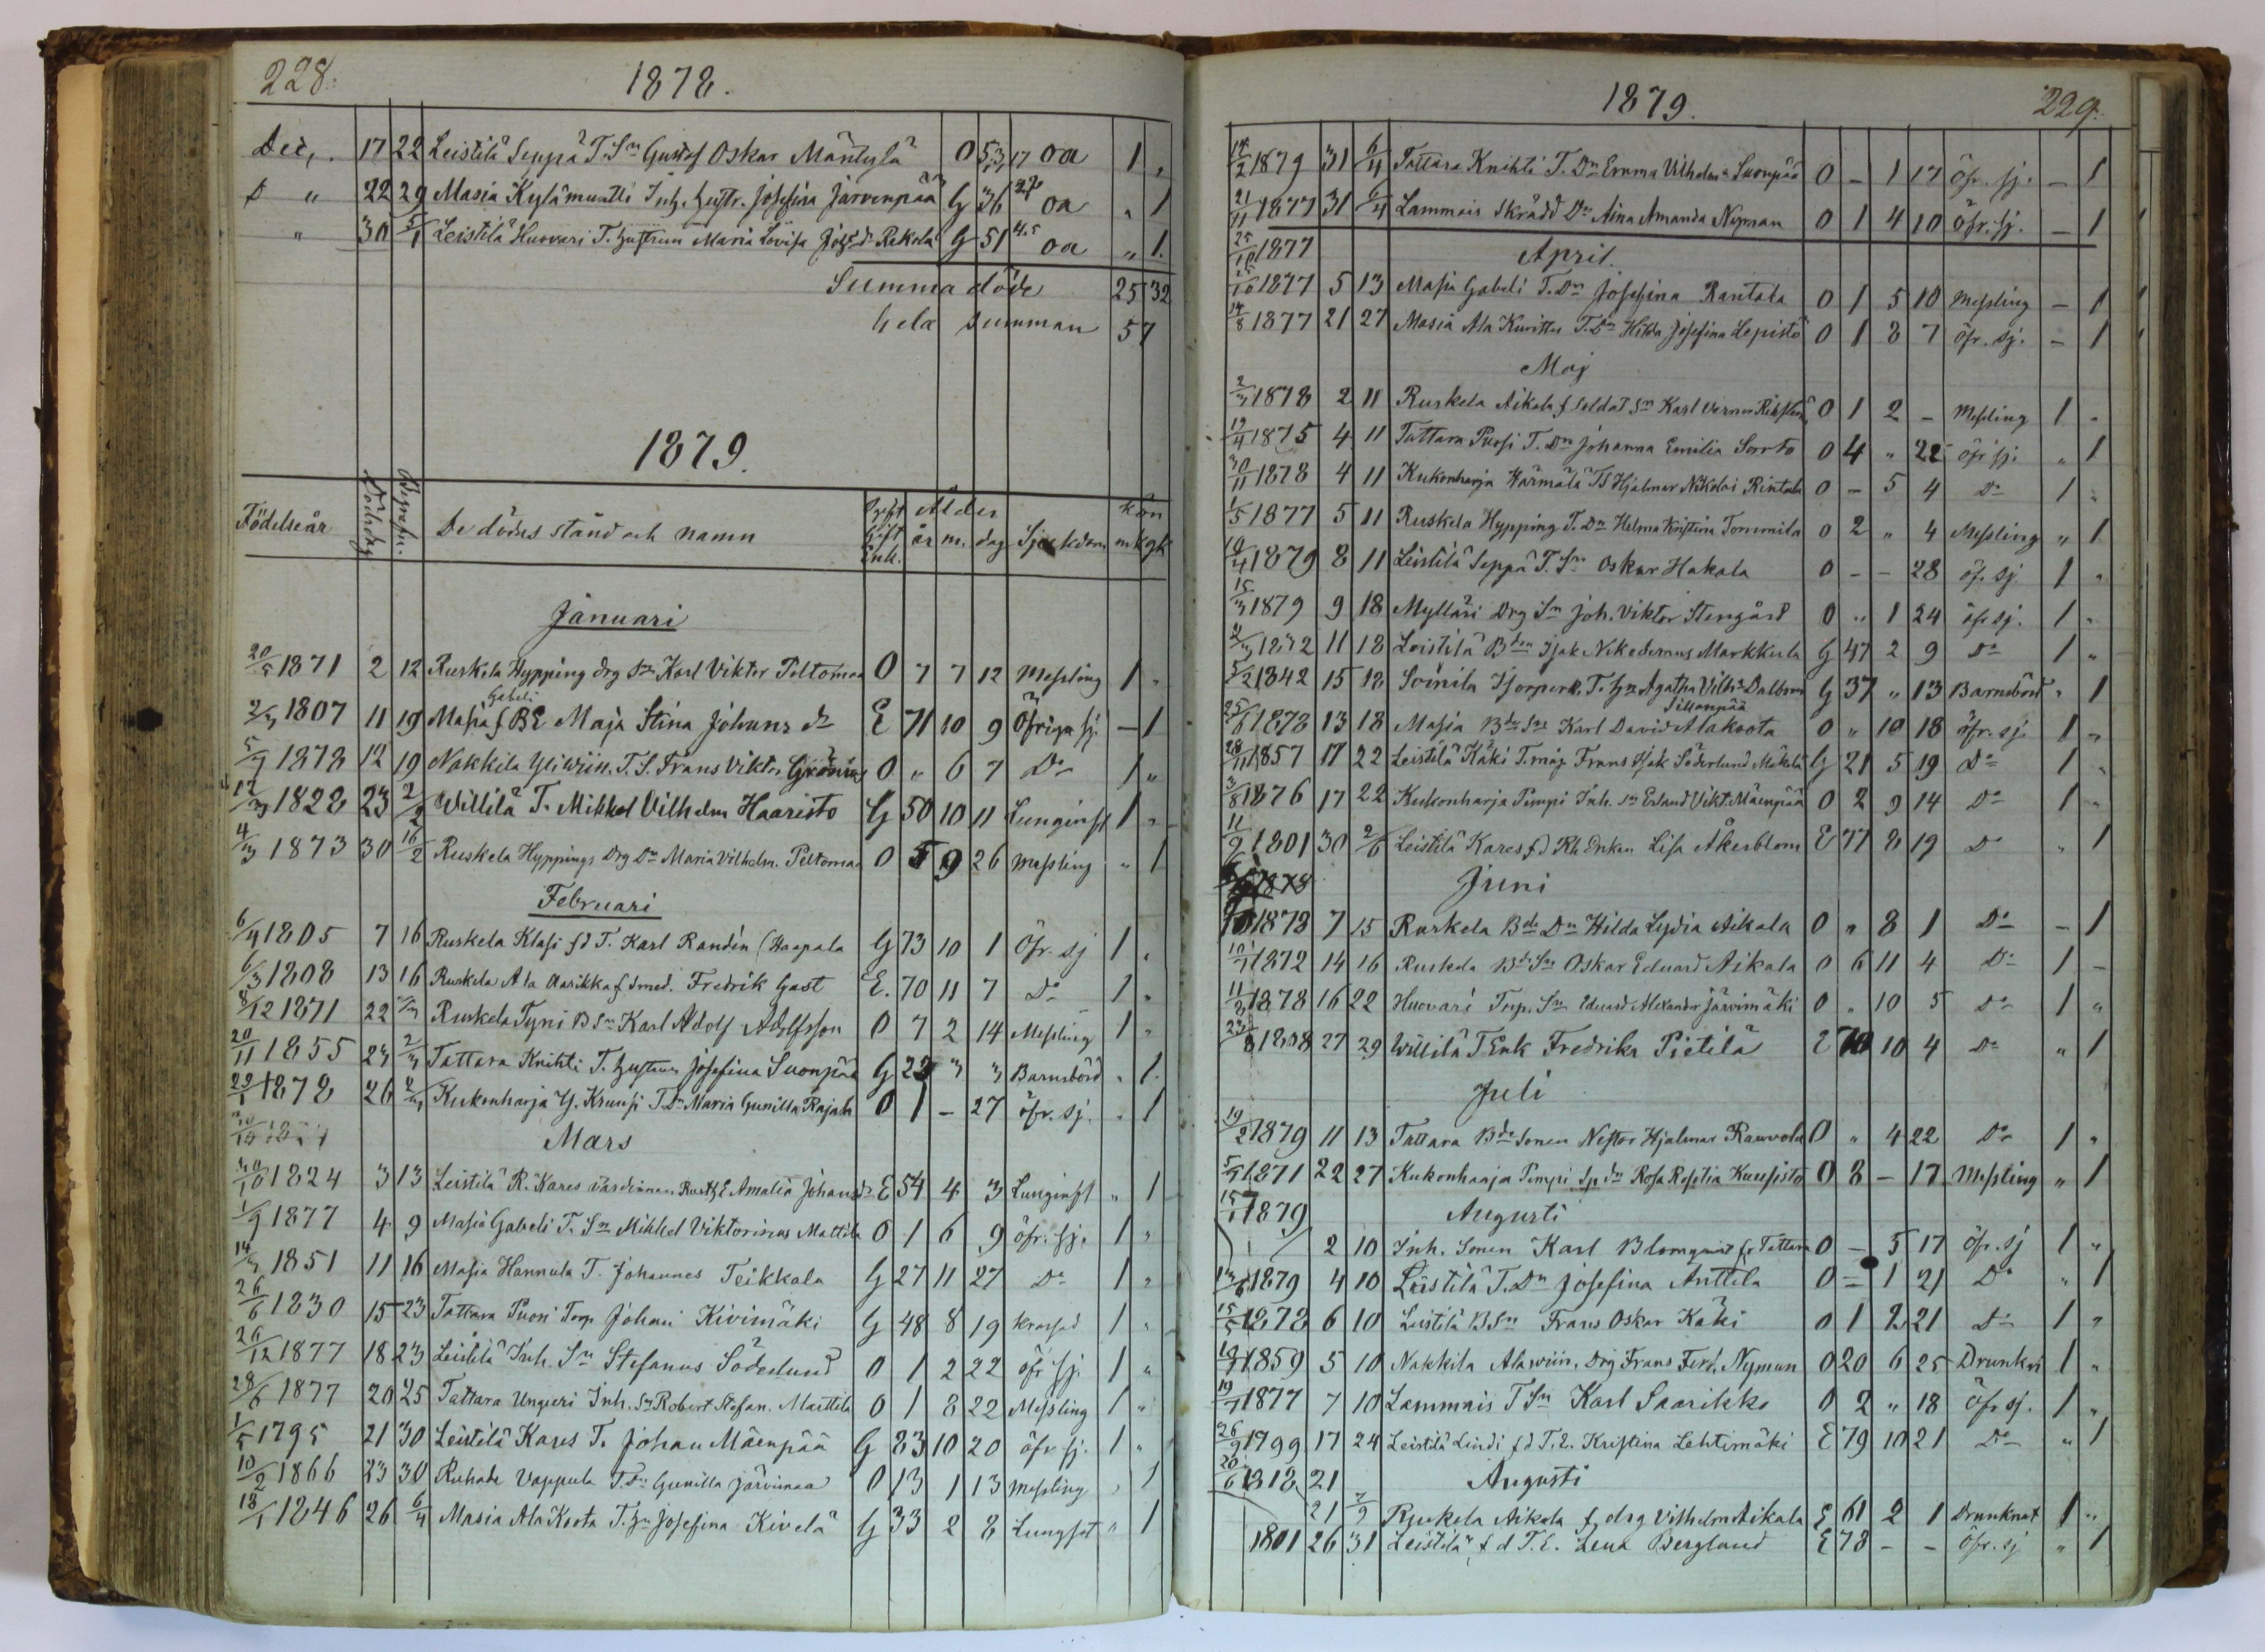 228.
1878.
Dec. 17 22 Leistilä Seppä T. Sn Gustaf Oskar Mäntylä 0 5 3 17 oa 1 „
D „ 22 29 Masia Kylämuntti Inh. hustr. Josefina Järvenpää G 36 oa „ 1
„ 30 5/1 Leistilä Huovari T. hustrun Maria Lovisa Rekola G 51 oa „ 1.
Summa döde 25 32
hela summan 57
1879.
Födelseår Dödsdag Begrafn. De dödas stånd och namn Ogift Gift Enk. Ålder år m. dag Sjukdom kön mk qk
Januari
20/5 1871 2 12 Ruskela Hypping drg Sn Karl Viktor Peltomaa O 7 7 12 Messling 1 „
Gabeli
2/3 1807 11 19 Masia f BE Maja Stina Johans dr E 71 10 9 Öfriga sj. — 1
5/7 1878 12 19 Nakkila Yliwiin. T. S. Frans Viktor Grönroos O „ 6 7 Do 1 „
12/3 1828 23 2/2 Willilä T. Mikkel Vilhelm Haaristo G 50 10 11 Lunginfl 1 „
4/3 1873 30 16/2 Ruskela Hyppings Drg Dr Maria Vilhelm. Peltomaa O 5 9 26 Messling „ 1
Februari
6/4 1805 7 16 Ruskela Klasi fd T. Karl Randén (Haapala G 73 10 1 Öfr. sj 1 „
6/3 1808 13 16 Ruskela Ala Aarikka f Smed. Fredrik Gast E. 70 11 7 Do 1 „
8/12 1871 22 Ruskela Tyni B Sn Karl Adolf Adolfsson O 7 2 14 Messling 1 „
20/11 1855 23 2/3 Tattara Knihti T. hustrun Josefina Suonpää G 23 3 3 Barnsbörd „ 1.
1878 26 2/3 Kukonharja Y. Kruusi T. Dr Maria Gunilla Rajala O 1 — 27 öfr. sj. „ 1
Mars
30/10 1824 3 13 Leistilä R. Kares E Amalia Johansdr E 54 4 3 Lunginfl „ 1
1/9 1877 4 9 Masia Gabeli T. Sn Mikkel Viktorinus Mattila O 1 6 9 öfr. sj. 1 „
14/3 1851 11 16 Masia Hannula T. Johannes Teikkala G 27 11 27 Do 1 „
26/6 1830 15 23 Tattara Puosi Torp. Johan Kivimäki G 48 8 19 krossad 1 „
26/12 1877 18 23 Leistilä Inh. Sn Stefanus Söderlund O 1 2 22 öfr sj. 1 „
28/6 1877 20 25 Tattara Ungeri Inh. Sn Robert Stefan. Marttila O 1 8 22 Messling 1 „
1/5 1795 21 30 Leistilä Kares T. Johan Mäenpää G 83 10 20 öfr sj. 1 „
10/2 1866 23 30 Ruhade Vappula T. Dr Gunilla Järvinaa O 13 1 13 Messling „ 1
18/1 1846 26 6/4 Masia Ala Koota T. hu Josefina Kivelä G 33 2 8 Lungsot „ 1
1879.
229.
14/2 1879 31 6/4 Tattara Knihti T. Dr Emma Vilhelmª Suonpää O — 1 17 öfr. sj. — 1
21/11 1877 31 6/4 Lammais Skrädd Dr Aina Amanda Nyman O 1 4 10 Öfr. sj. — 1
25/10 1877 April.
25/10 1877 5 13 Masia Gabeli T. Dr Josefina Rantala O 1 5 10 Messling — 1
14/8 1877 21 27 Masia Ala Kurittu T. Dr Hilda Josefina Lepistö O 1 8 7 öfr. sj. — 1
Maj
2/3 1878 2 11 Ruskela Aikala f Soldat Sn Karl Verner O 1 2 — Messling 1 „
12/4 1875 4 11 Tattara Puosi T. Dr Johanna Emilia Sorrto O 4 „ 22 öfr sj. „ 1
30/11 1878 4 11 Kukonharja Härmälä TS Hjalmar Nikolai Rintala O — 5 4 Do 1 „
1/5 1877 5 11 Ruskela Hypping T. Dr Helma Kristina Tommila O 2 „ 4 Messling „ 1
10/4 1879 8 11 Leistilä Seppä T. Sn Oskar Hakala O — — 28 öf. sj 1 „
15/3 1879 9 18 Mylläri Drg Sn Joh. Viktor Stengård O „ 1 24 öfr sj. 1 „
2/3 1832 11 18 Leistilä Bden Isak Nikodemus Markkula G 47 2 9 Do 1 „
5/2 1842 15 18 Soinila Storperk. T. hu Agatha Vilhª Dalbom G 37 „ 13 Barnsbörd „ 1
Sillanpää
25/6 1878 13 18 Masia Bde Sn Karl David Alakoota O „ 10 18 öfr. sj. 1 „
28/11 1857 17 22 Leistilä Käki T. måg Frans Isak Söderlund Mäkelä G 21 5 19 Do 1 „
3/8 1876 17 22 Kukonharja Pumpi Inh. Sn Erland Vikt. Mäenpää O 2 9 14 Do 1 „
11/9 1801 30 2/6 Leistilä Kares fd Rh Enkan Lisa Åkerblom E 77 8 19 Do „ 1
Juni
6/10 1878 7 15 Ruskela Bde Dr Hilda Lydia Aikala O „ 8 1 Do — 1
10/7 1872 14 16 Ruskela Bde Sn Oskar Eduard Aikala O 6 11 4 Do 1 —
11/8 1878 16 22 Huovari Torp. Sn Eduard Alexander Järvimäki O „ 10 5 Do 1 „
23/8 1808 27 29 Willilä T Enk Fredrika Pietilä E 70 10 4 Do „ 1
Juli
19/2 1879 11 13 Tattara Bde Sonen Nestor Hjalmar Rauvola O „ 4 22 Do 1 „
5/7 1871 22 27 Kukonharja Pumpi Sp dr Rosa Rosetia Kuusisto O 8 — 17 Messling „ 1
15/1 1879 Augusti
2 10 Inh. Sonen Karl Blomqvist fr Tattara O — 5 17 Öfr. sj 1 „
13/6 1879 4 10 Leistilä T. Dr Josefina Anttila O — 1 21 Do „ 1
15/5 1878 6 10 Leistilä B Sn Frans Oskar Käki O 1 2 21 Do 1 „
10/1 1859 5 10 Nakkila Alawiin. Drg Frans Ferd. Nyman O 20 6 25 Drunkn 1 „
19/7 1877 7 10 Lammais T Sn Karl Saarikko O 2 „ 18 Öfr sj. 1 „
26/9 1799 17 24 Leistilä Lindi fd T. E. Kristina Lehtimäki E 79 10 21 Do „ 1
20/6 1818 21 Augusti
21 7/9 Ruskela Aikala f drg Vilhelm Aikala E 61 2 1 Drunknat 1 „
1801 26 31 Leistilä f d T. E. Lena Berglund E 78 — — Öfr. sj „ 1